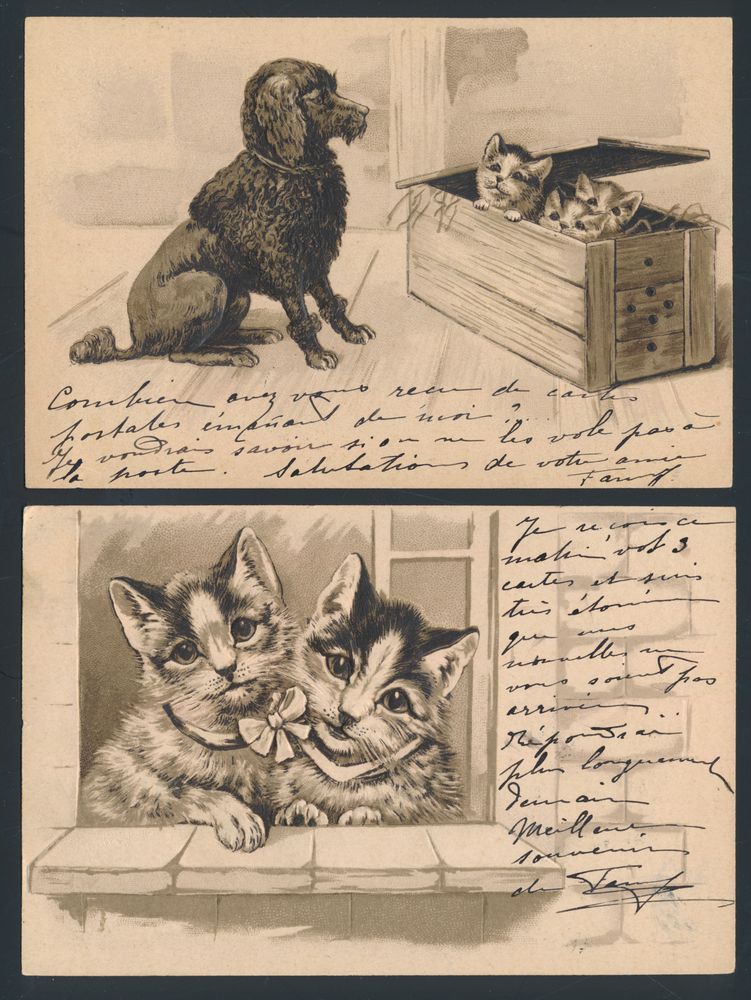 Combien avez vous recu de cartes
postales émanant de moi ?...
Je voudrais savoir si on ne les vole pas à
la poste. Salutations de votre amie
Je reçois ce
matin vos 3
cartes et suis
très étonnée
que mes
nouvelles ne
vous soient pas
arrivées
Répondrai
plus longuement
demain
Meilleur
souvenir
de